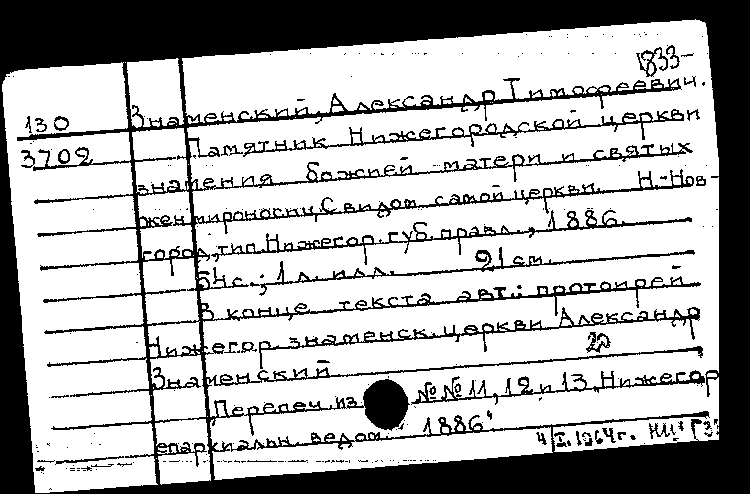 1833-
130 Знаменский, Александр Тимофеевич.
3702 Памятник Нижегородской церкви
знамения божией матери и святых
жен мироносиц, С видом самой церкви. Н.-Нов-
город, тип. Нижегор. губ. правл., 1886.
54 с.; 1 л. илл. 21 см.
В конце текста авт.: протоирей
Нижегор. знаменск. церкви Александр
Знаменский
20
"Перепеч. из №№ 11, 12 и 13 "Нижегор
епархиальн. ведом." 1886"
4/I.1964 г.